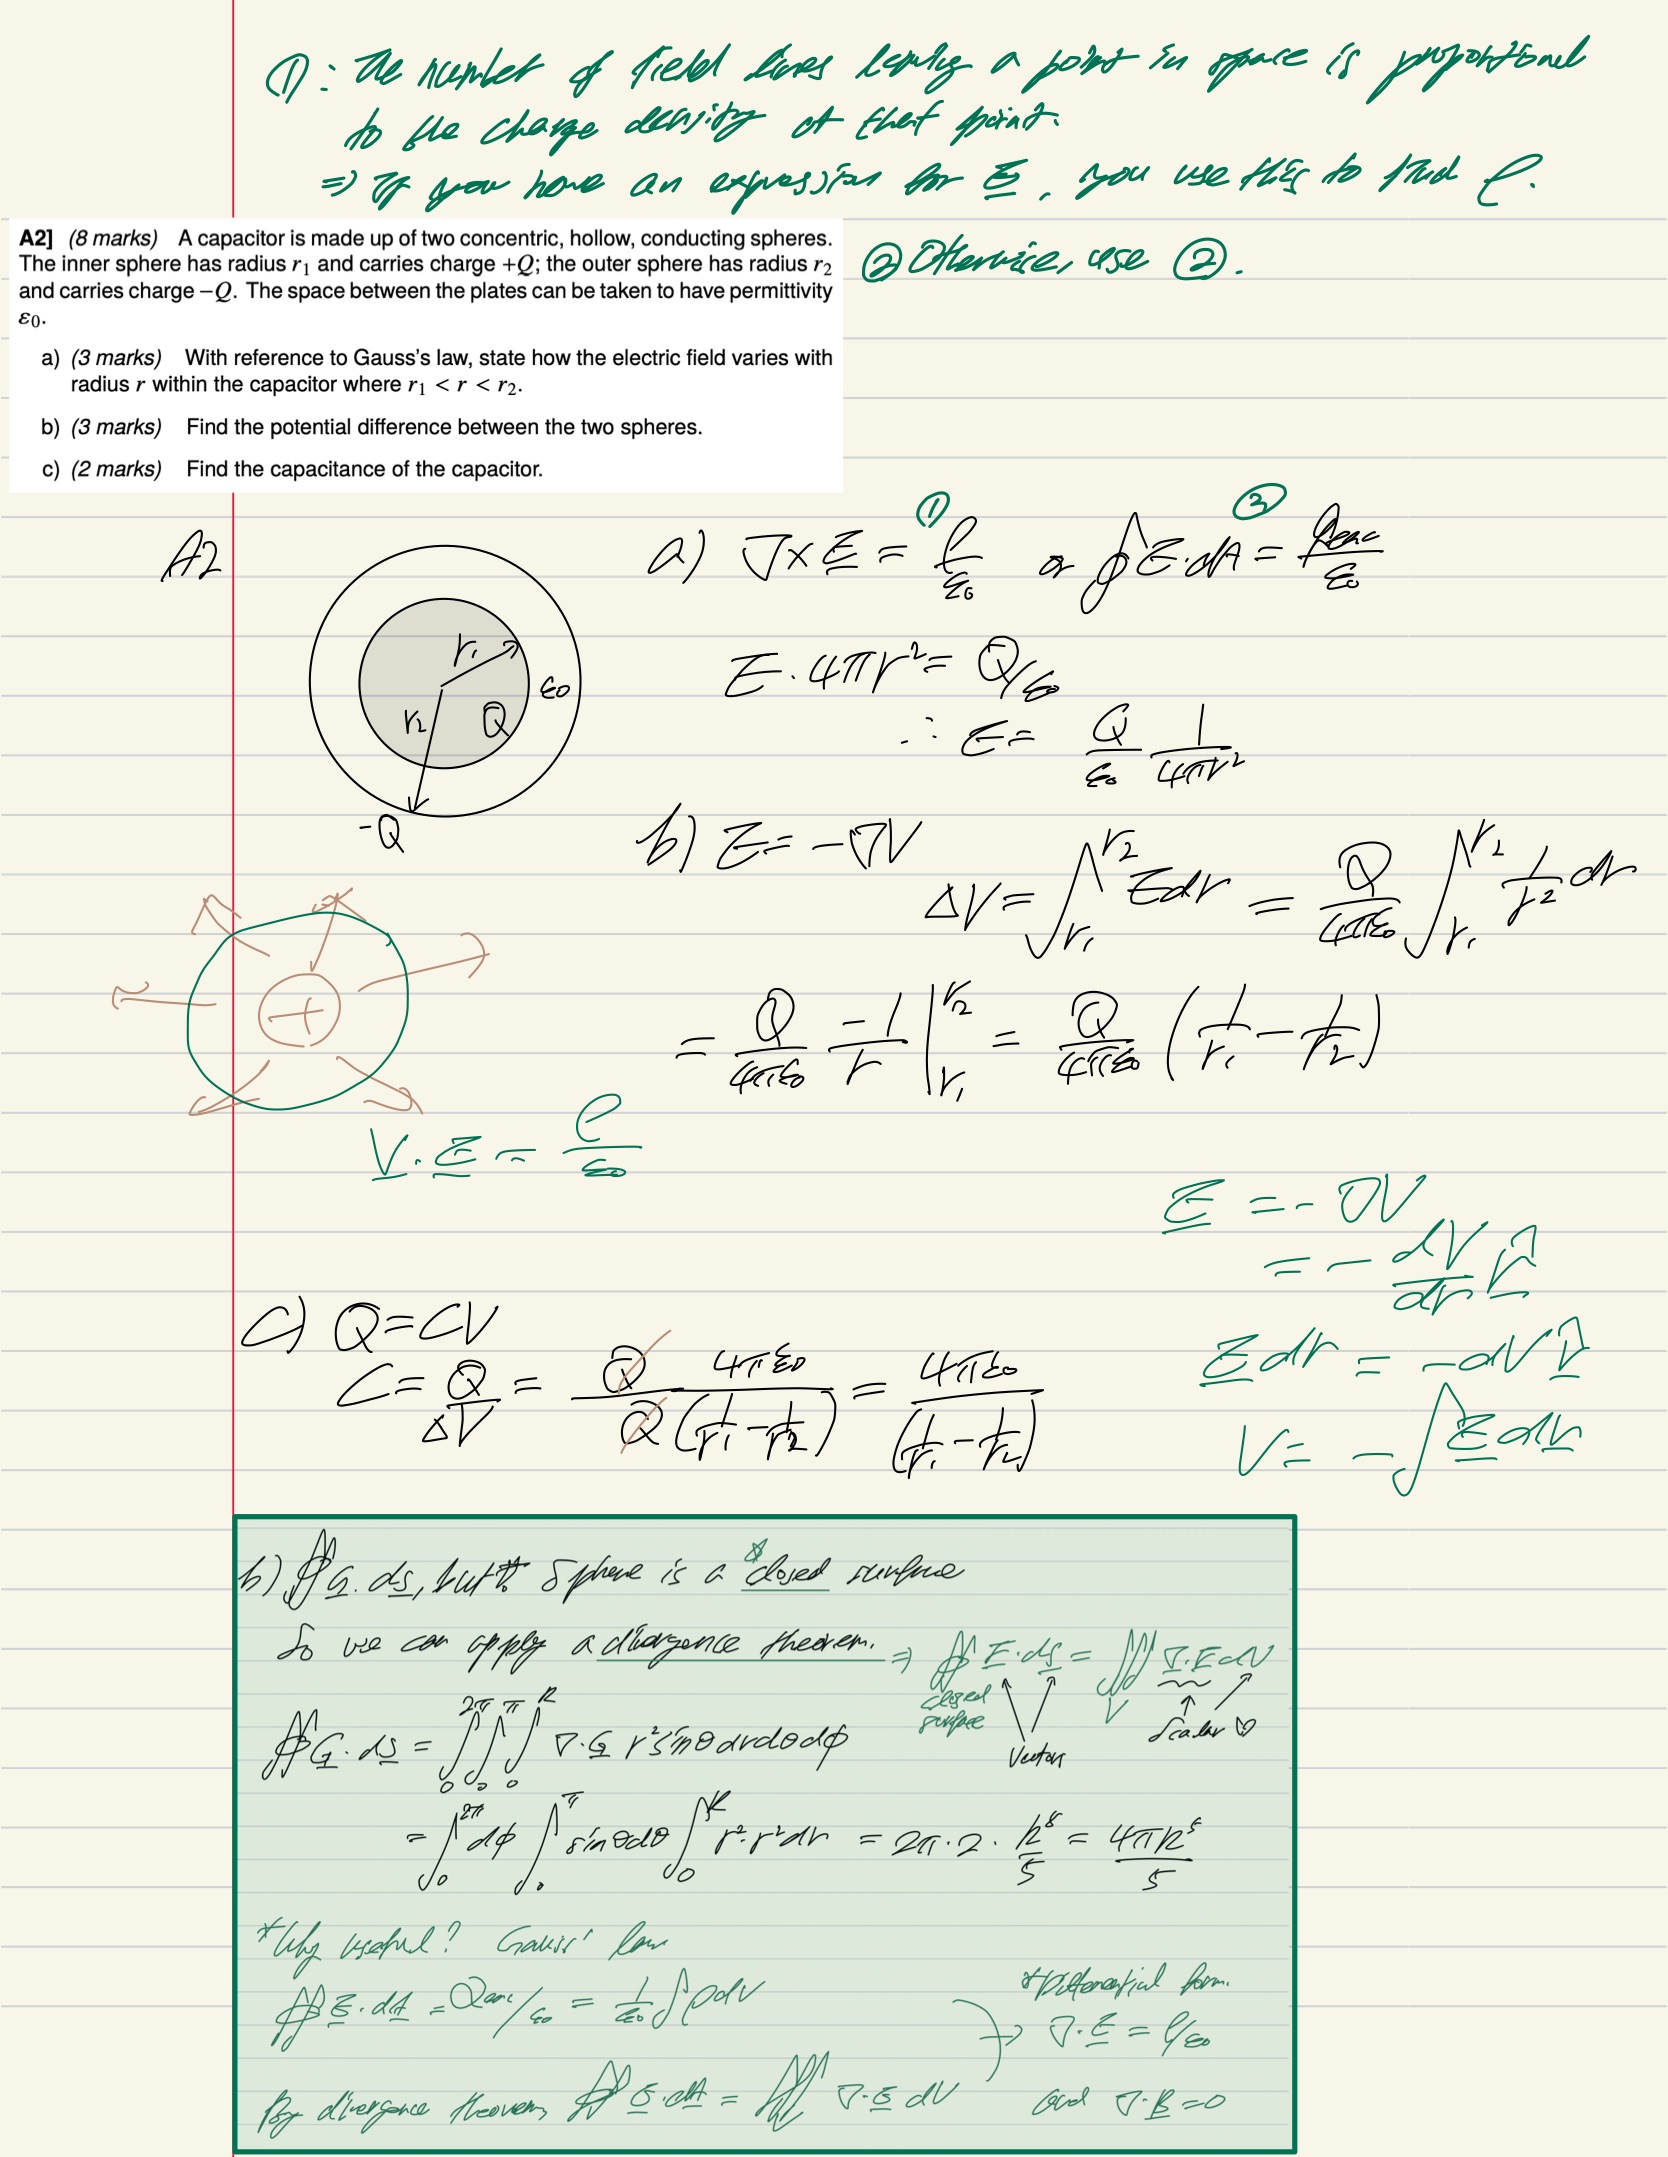 ①: The number of field lines leaving a point in space is proportional
to the charge density at that point.
⇒ If you have an expression for E, you use this to find ρ.
② Otherwise, use ②.
A2] (8 marks) A capacitor is made up of two concentric, hollow, conducting spheres.
The inner sphere has radius r₁ and carries charge +Q; the outer sphere has radius r₂
and carries charge −Q. The space between the plates can be taken to have permittivity
ε₀.
a) (3 marks) With reference to Gauss's law, state how the electric field varies with
radius r within the capacitor where r₁ < r < r₂.
b) (3 marks) Find the potential difference between the two spheres.
c) (2 marks) Find the capacitance of the capacitor.
A2
r₁
r₂
Q
ε₀
-Q
① ②
a) ∇×E = ρ/ε₀ or ∮E·dA = Qenc/ε₀
E·4πr² = Q/ε₀
∴ E = Q/ε₀ 1/4πr²
b) E = -∇V
ΔV = ∫_{r₁}^{r₂} E dr = Q/4πε₀ ∫_{r₁}^{r₂} 1/r² dr
= Q/4πε₀ -1/r |_{r₁}^{r₂} = Q/4πε₀ (1/r₁ - 1/r₂)
+
∇·E = ρ/ε₀
E = -∇V
= - dV/dr r̂
E dr = -dV r̂
V = -∫E dr
c) Q = CV
C = Q/ΔV = Q 4πε₀ / Q(1/r₁ - 1/r₂) = 4πε₀ / (1/r₁ - 1/r₂)
b) ∯G·ds, but sphere is a closed surface
So we can apply a divergence theorem. ⇒ ∯E·ds = ∭_V ∇·E dV
closed
surface
Vectors
Scalar
∯G·ds = ∫_0^{2π} ∫_0^π ∫_0^R ∇·G r² sinθ dr dθ dϕ
= ∫_0^{2π} dϕ ∫_0^π sinθ dθ ∫_0^R r²·r² dr = 2π·2·R⁵/5 = 4πR⁵/5
*Why useful? Gauss' law
∯E·dA = Qenc/ε₀ = 1/ε₀ ∫ρdV
*Differential form.
→ ∇·E = ρ/ε₀
By divergence theorem, ∯E·dA = ∭ ∇·E dV
and ∇·B = 0